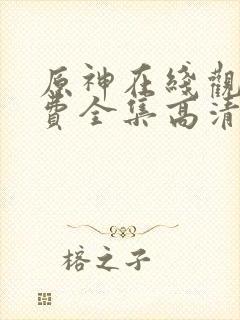 原神在綫觀
費全集高清
榕之子